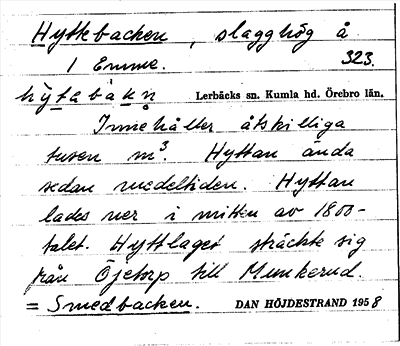 Hyttebacken, slagghög å
1 Emme. 323.
hỳtabàkn Lerbäcks sn. Kumla hd. Örebro län.
Innehåller åtskilliga
tusen m³. Hyttan ända
sedan medeltiden. Hyttan
lades ner i mitten av 1800-
talet. Hyttlaget sträckte sig
från Öjetorp till Munkerud.
= Smedbacken. DAN HÖJDESTRAND 1958